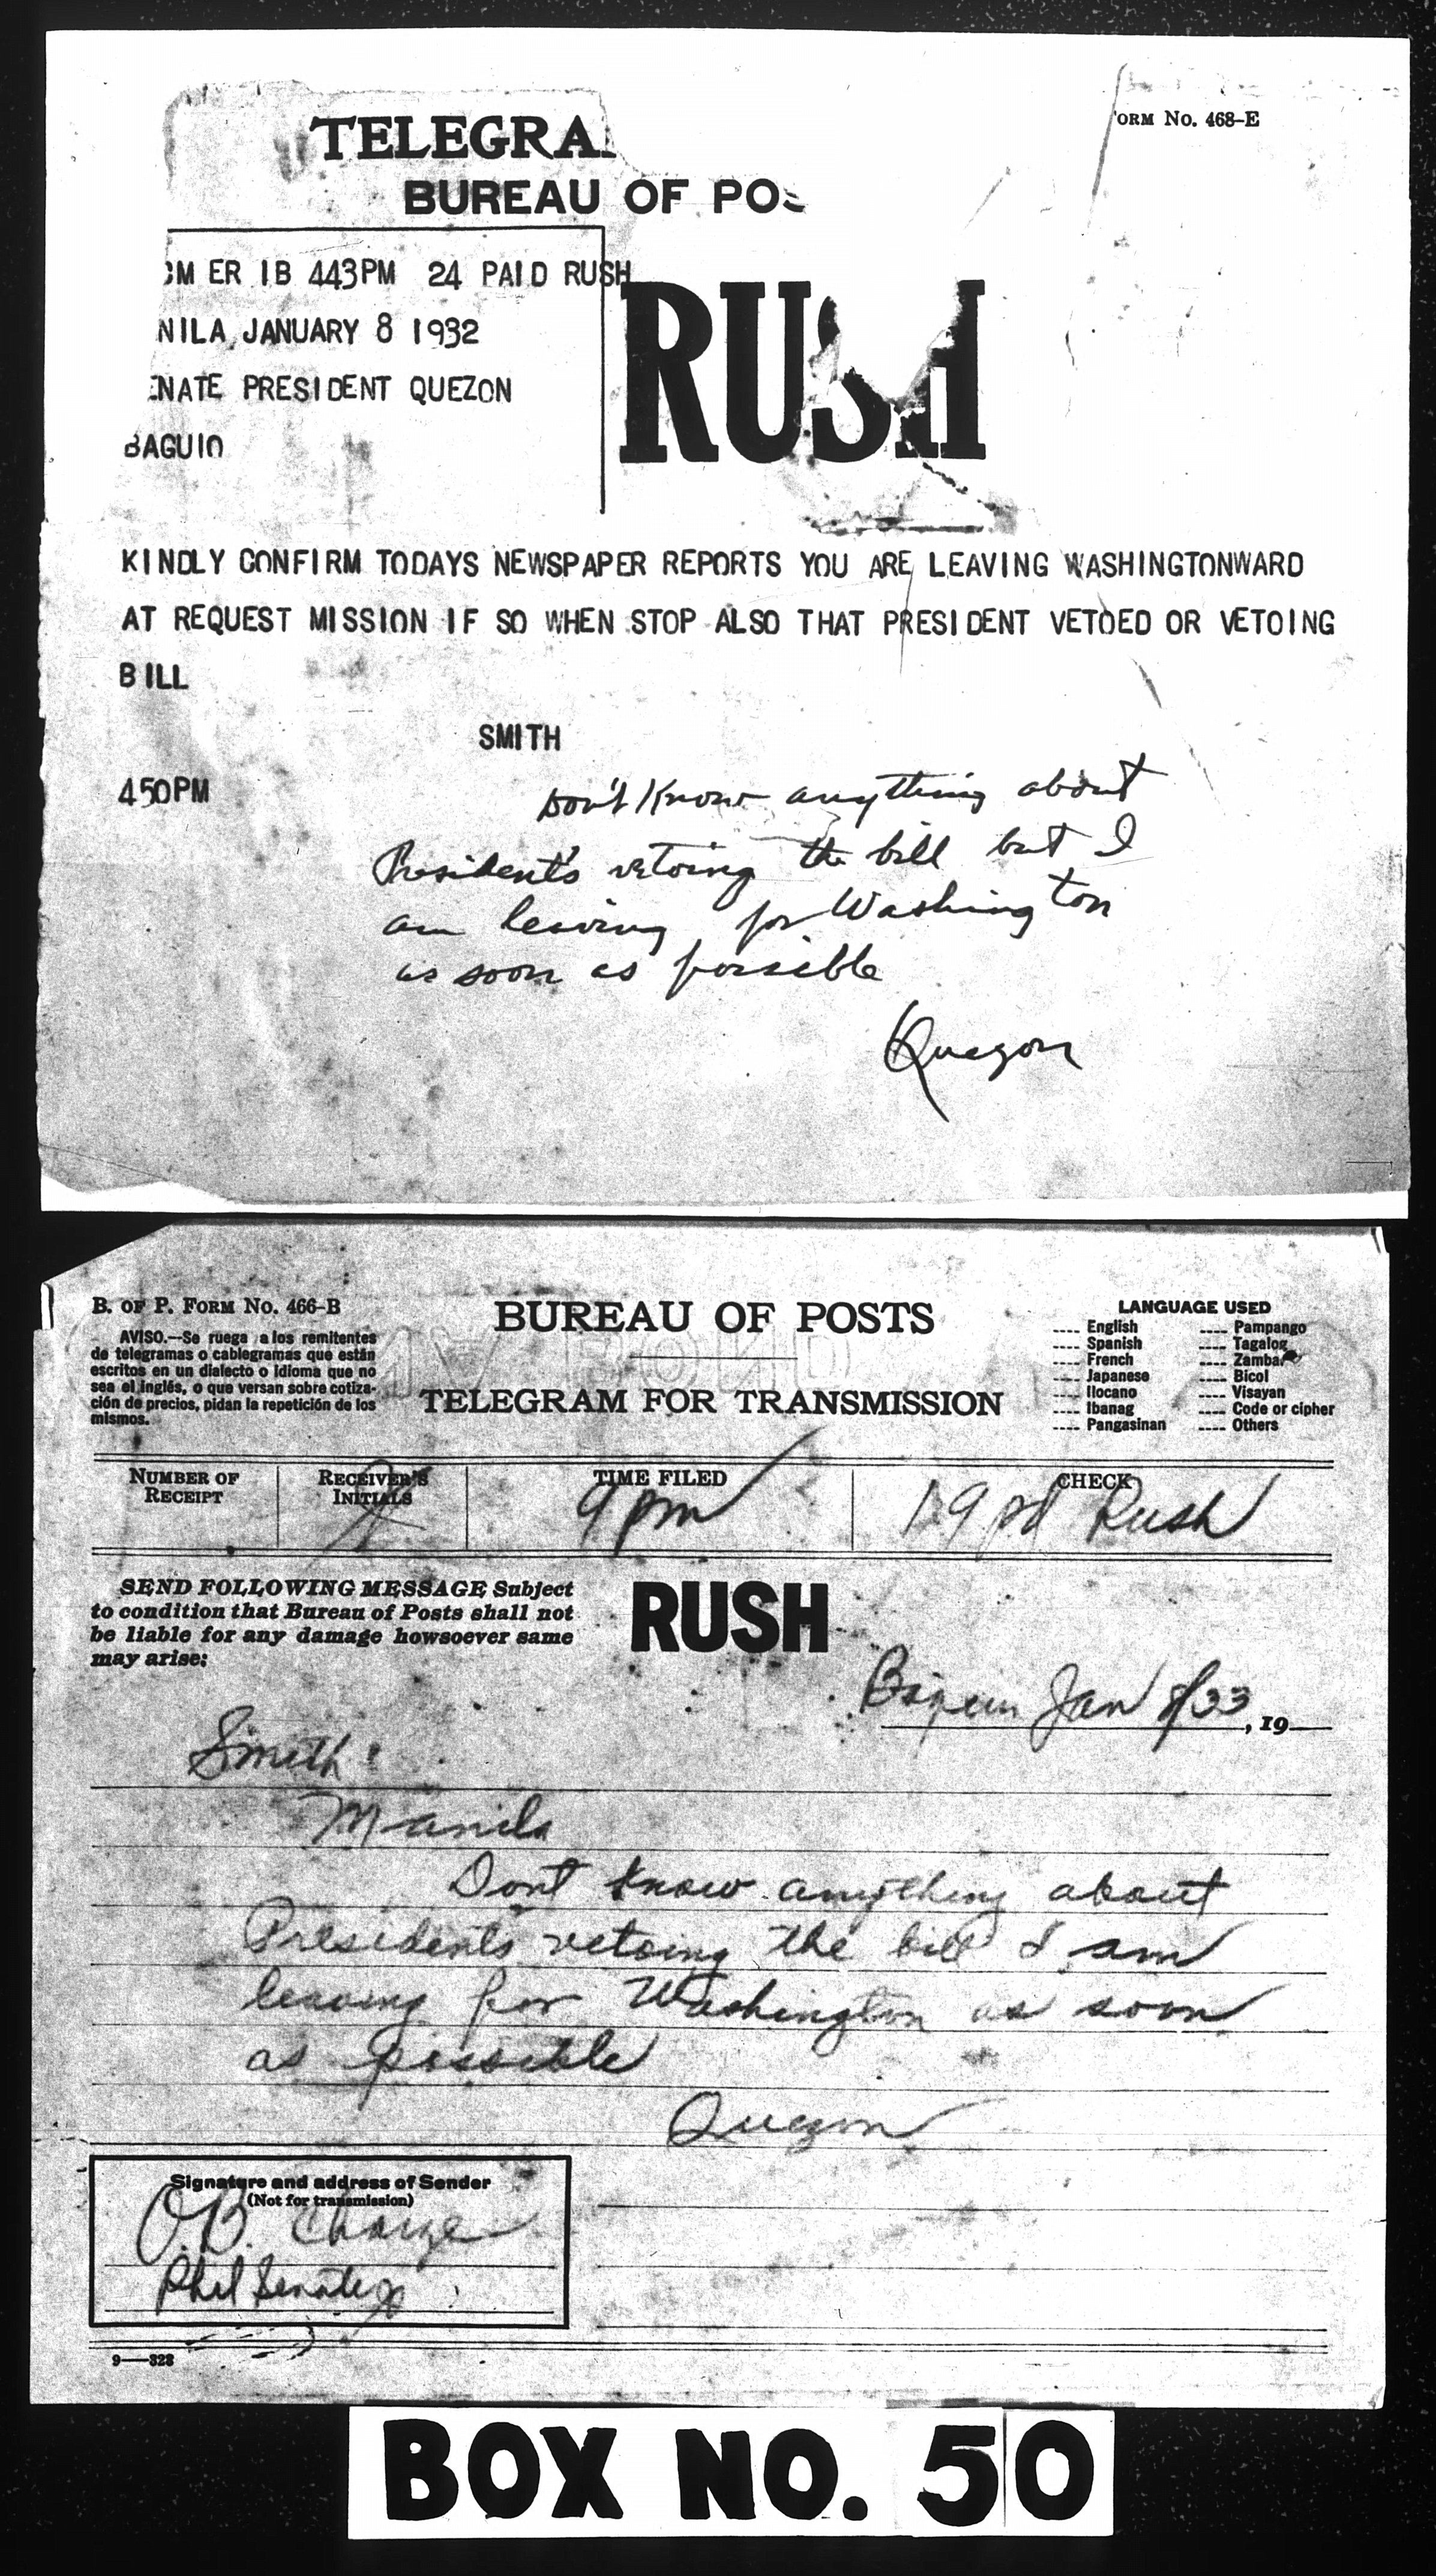 TELEGRA
ORM No. 468-E
BUREAU OF PO
M ER IB 443PM 24 PAID RUSH
NILA JANUARY 8 1932
RUSH
ENATE PRESIDENT QUEZON
BAGUIO
KINDLY CONFIRM TODAYS NEWSPAPER REPORTS YOU ARE LEAVING WASHINGTONWARD
AT REQUEST MISSION IF SO WHEN STOP ALSO THAT PRESIDENT VETOED OR VETOING
BILL
SMITH
450PM
Don't Know anything about
President's vetoing the bill but I
am leaving for Washington
as soon as possible
Quezon
B. OF P. FORM No. 466-B
AVISO.—Se ruega a los remitentes
de telegramas o cablegramas que están
escritos en un dialecto o idioma que no
sea el inglés, o que versan sobre cotiza-
ción de precios, pidan la repetición de los
mismos.
BUREAU OF POSTS
TELEGRAM FOR TRANSMISSION
LANGUAGE USED
---- English ---- Pampango
---- Spanish ---- Tagalog
---- French ---- Zambal
---- Japanese ---- Bicol
---- Ilocano ---- Visayan
---- Ibanag ---- Code or cipher
---- Pangasinan ---- Others
NUMBER OF RECEIPT
RECEIVER'S INITIALS
TIME FILED
9 pm
CHECK
19 pd Rush
SEND FOLLOWING MESSAGE Subject
to condition that Bureau of Posts shall not
be liable for any damage howsoever same
may arise:
RUSH
Baguio Jan 8/33, 19
Smith
Manila
Dont know anything about
Presidents vetoing the bill I am
leaving for Washington as soon
as possible
Quezon
Signature and address of Sender
(Not for transmission)
O.B. Charge
Phil Senate
9—323
BOX NO. 50